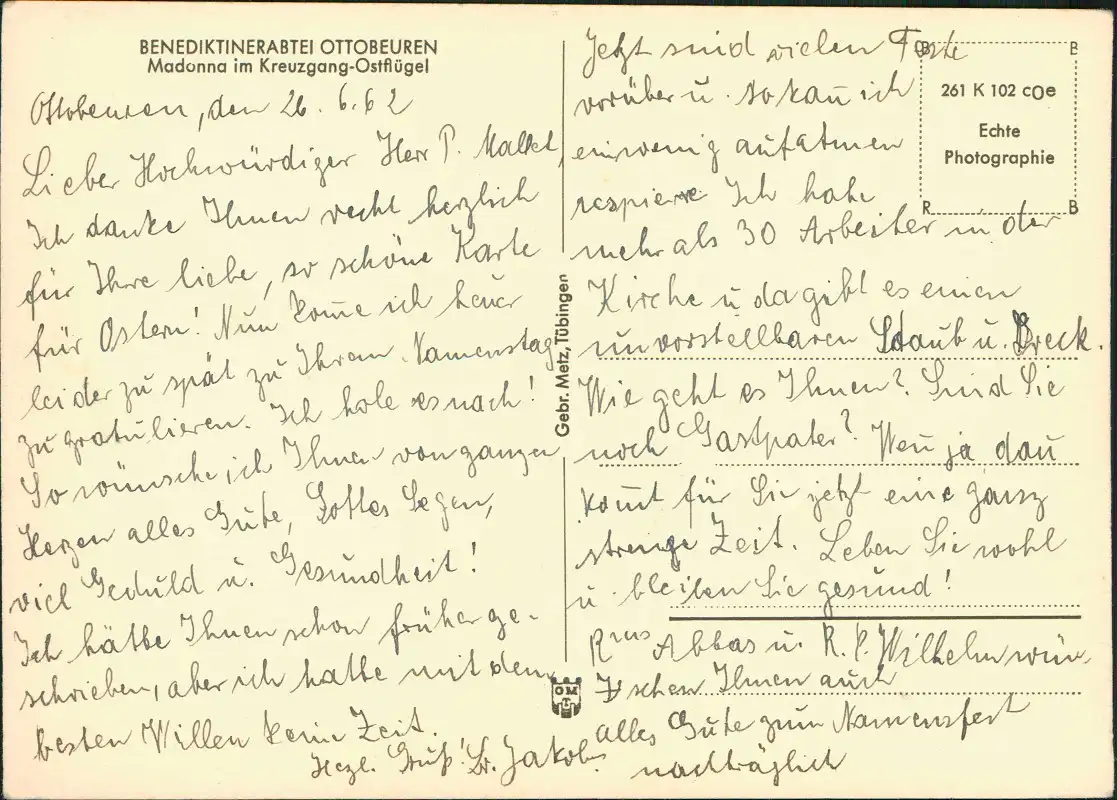 BENEDIKTINERABTEI OTTOBEUREN
Madonna im Kreuzgang-Ostflügel
Ottobeuren, den 26. 6. 62
Lieber Hochwürdiger Herr P.
Ich danke Ihnen recht herzlich
für Ihre liebe, so schöne Karte
für Ostern! Nun kom̄e ich heuer
leider zu spät zu Ihrem Namenstag
zu gratulieren. Ich hole es nach!
So wünsche ich Ihnen von ganzen
Herzen alles Gute, Gottes Segen,
viel Geduld u. Gesundheit!
Ich hätte Ihnen schon früher ge-
schrieben, aber ich hatte mit dem
besten Willen keine Zeit.
Herzl. Gruß! Br. Jakobus
Gebr. Metz, Tübingen
Jetzt sind vielen Feste
vorüber u. so kan̄ ich
ein wenig aufatmen
respiere Ich habe
mehr als 30 Arbeiter in der
Kirche u da gibt es einen
unvorstellbaren Staub u. Dreck.
Wie geht es Ihnen? Sind Sie
noch Gastpater? Wen̄ ja dan̄
kom̄t für Sie jetzt eine ganz
strenge Zeit. Leben Sie wohl
u. bleiben Sie gesund!
Rmus Abbas u. R. P. Wilhelm wün-
schen Ihnen auch
alles Gute zum Namensfest
nachträglich
B B
261 K 102 coe
Echte
Photographie
R B
OM